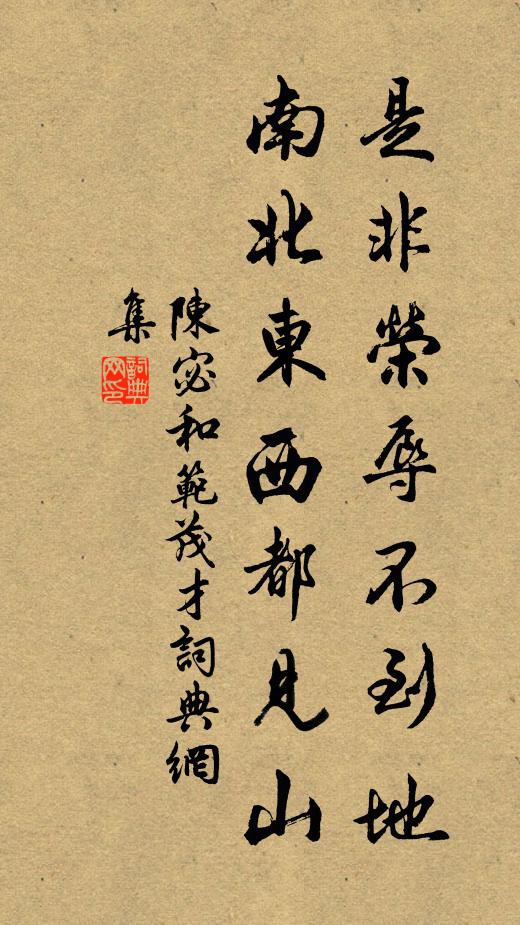 是非榮辱不到地
南北東西都見山
陳宓和範茂才詞典網
集
詞典
网印